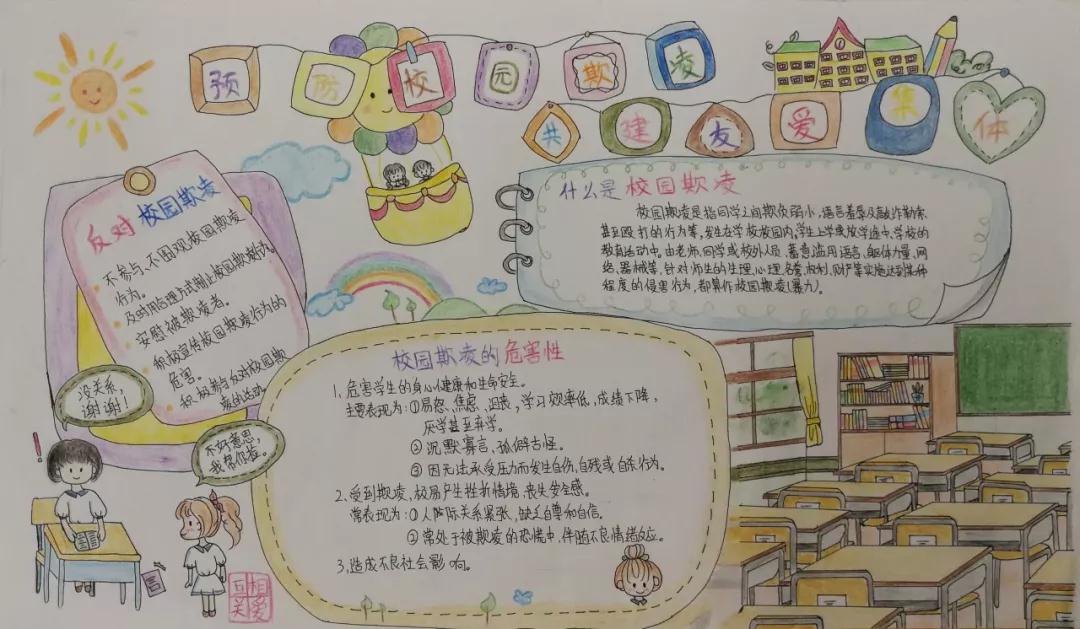 预防校园欺凌
共建友爱集体
反对校园欺凌
不参与、不围观校园欺凌
行为。
及时用合理方式制止校园欺凌行为。
安慰被欺凌者。
积极宣传校园欺凌行为的
危害。
积极参与反对校园欺
凌的活动
什么是校园欺凌
校园欺凌是指同学之间欺负弱小、语言羞辱及敲诈勒索
甚至殴打的行为等,发生在学校校园内、学生上学或放学途中、学校的
教育活动中。由老师、同学或校外人员,蓄意滥用语言、躯体力量、网
络、器械等,针对师生的生理、心理、名誉、权利、财产等实施达到某种
程度的侵害行为,都算作校园欺凌(暴力)。
校园欺凌的危害性
1、危害学生的身心健康和生命安全。
主要表现为:①易怒、焦虑、沮丧,学习效率低,成绩下降,
厌学甚至弃学。
②沉默寡言,孤僻古怪。
③因无法承受压力而发生自伤,自残或自杀行为。
2、受到欺凌,极易产生挫折情境,丧失安全感。
常表现为:①人际关系紧张,缺乏自尊和自信。
②常处于被欺凌的恐慌中,伴随不良情绪反应。
3、造成不良社会影响。
没关系,
谢谢!
不好意思,
我帮你捡。
互相
关爱